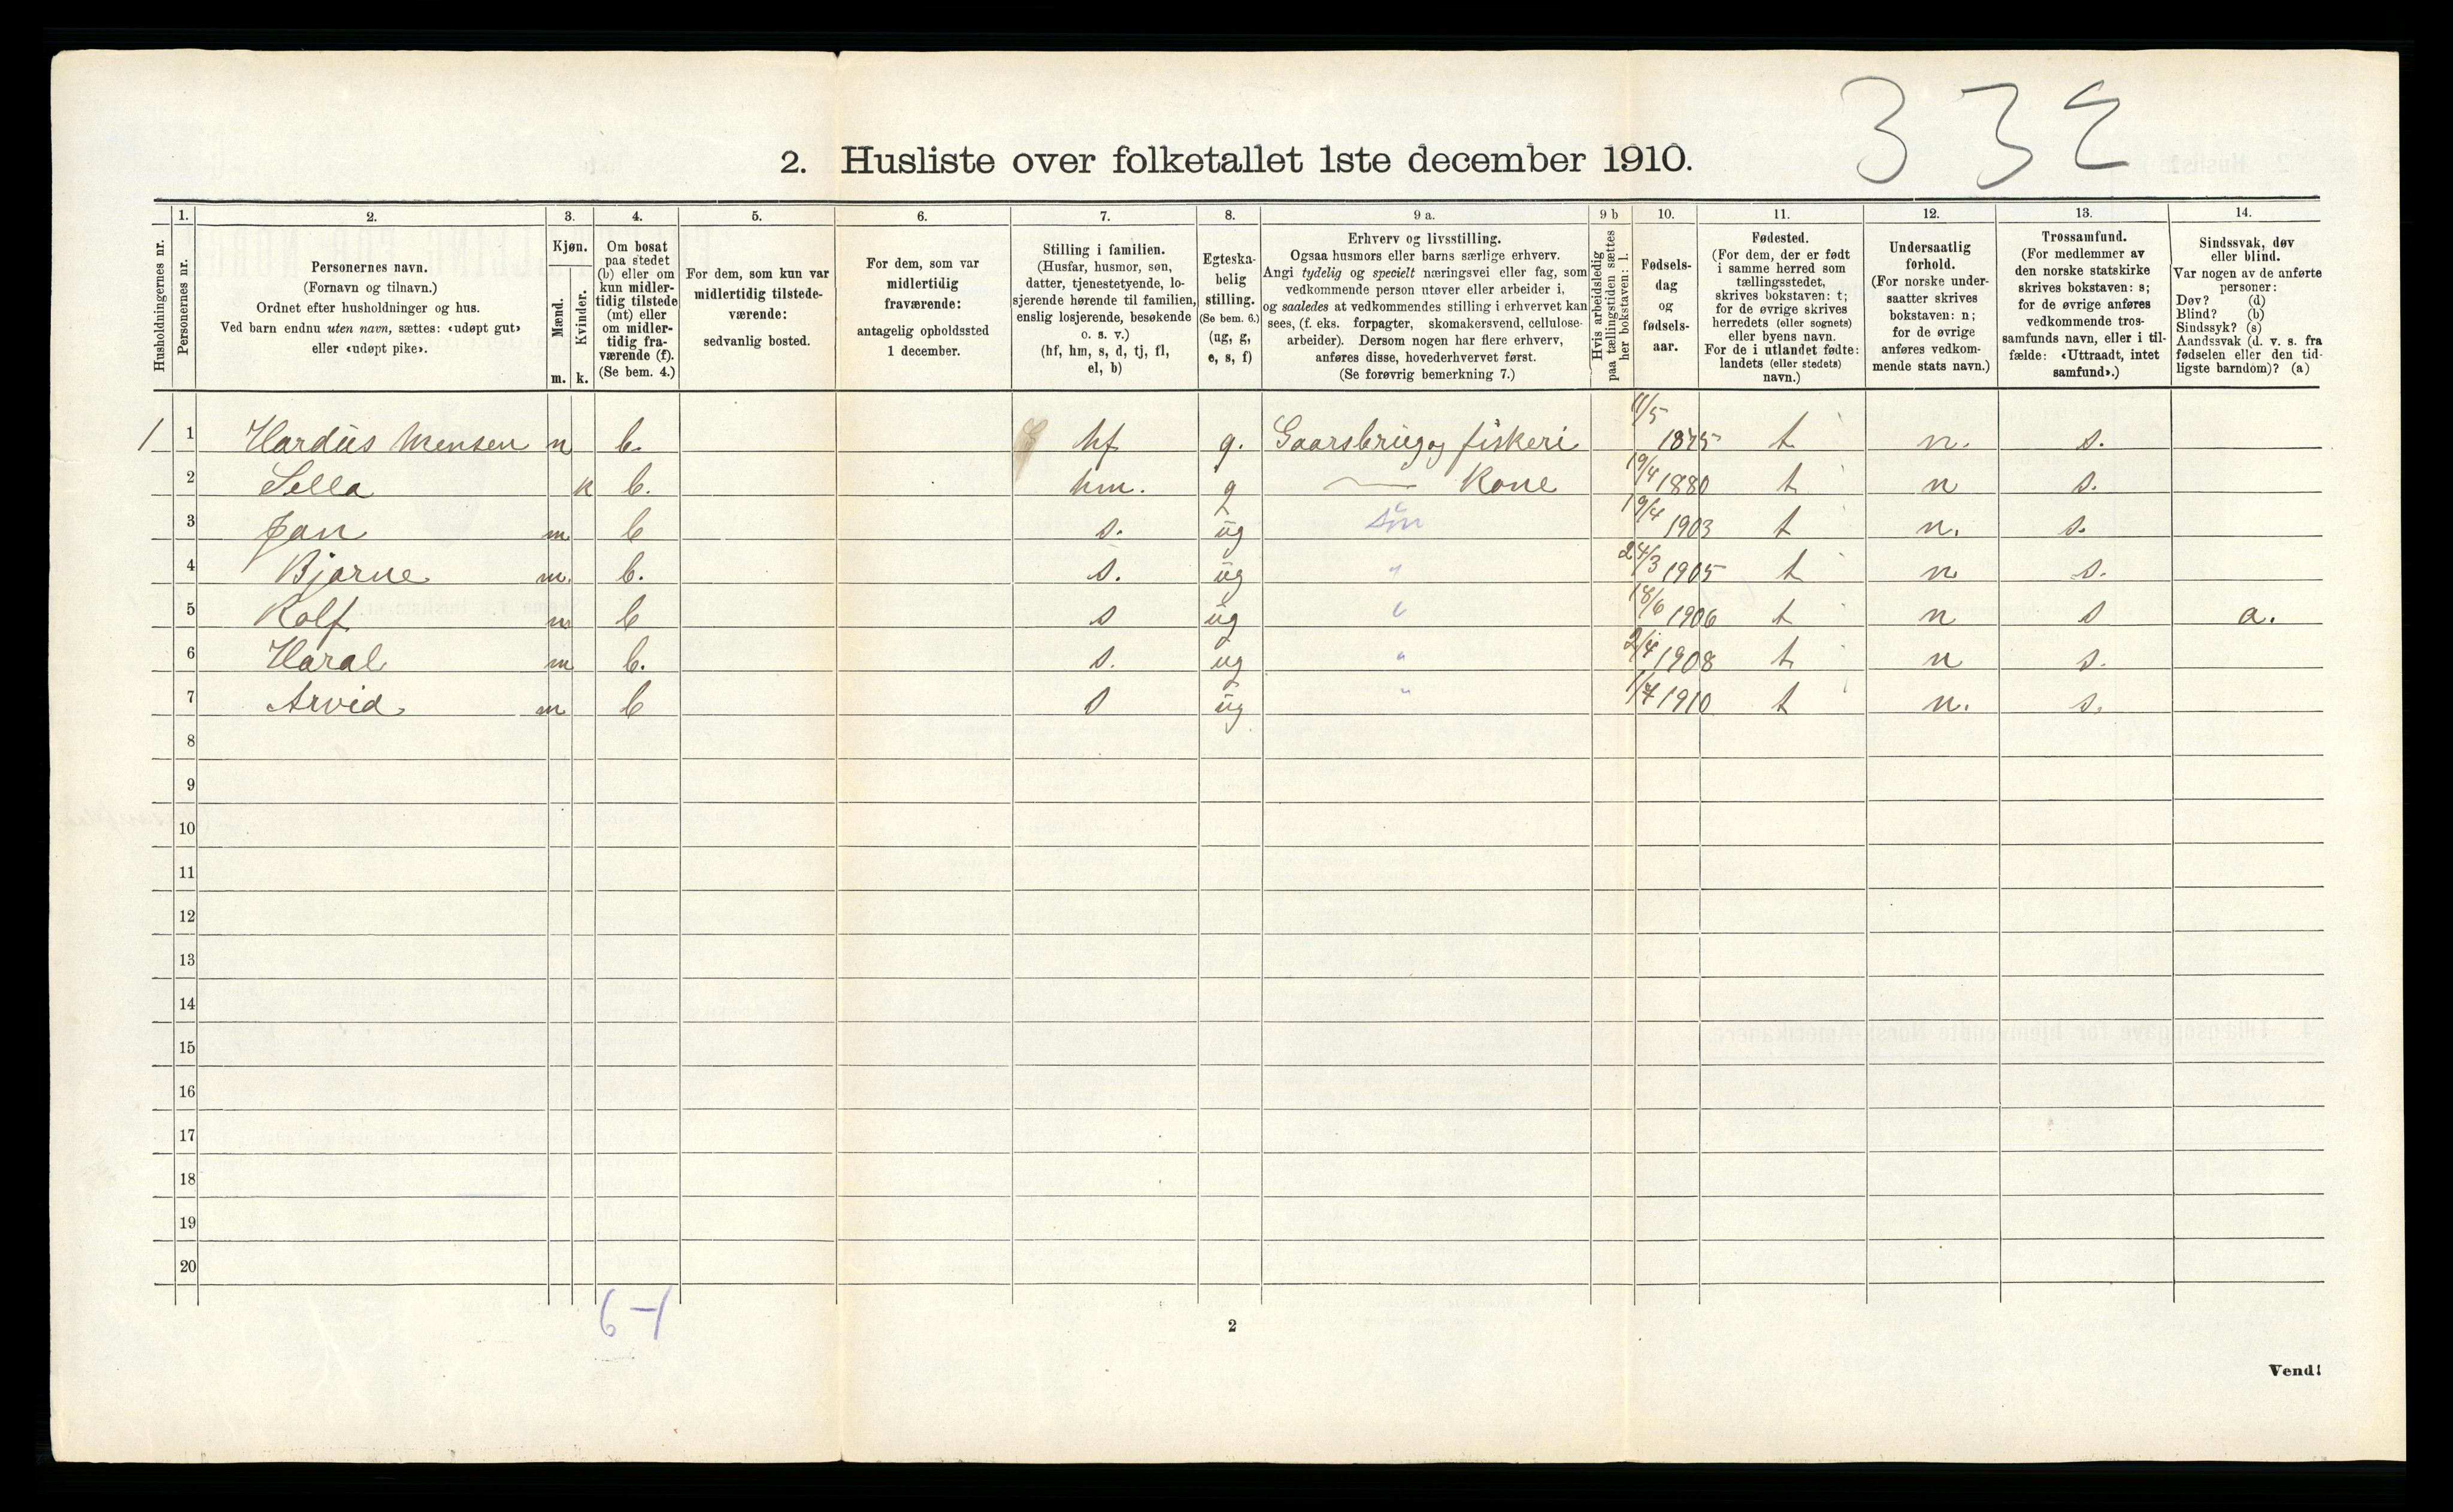 332
2. Husliste over folketallet 1ste december 1910.
Husholdningernes nr.
1.
Personernes nr.
2.
Personernes navn.
(Fornavn og tilnavn.)
Ordnet efter husholdninger og hus.
Ved barn endnu uten navn, sættes: «udøpt gut»
eller «udøpt pike».
3.
Kjøn.
Mænd.
Kvinder.
m. k.
4.
Om bosat
paa stedet
(b) eller om
kun midler-
tidig tilstede
(mt) eller
om midler-
tidig fra-
værende (f).
(Se bem. 4.)
5.
For dem, som kun var
midlertidig tilstede-
værende:
sedvanlig bosted.
6.
For dem, som var
midlertidig
fraværende:
antagelig opholdssted
1 december.
7.
Stilling i familien.
(Husfar, husmor, søn,
datter, tjenestetyende, lo-
sjerende hørende til familien,
enslig losjerende, besøkende
o. s. v.)
(hf, hm, s, d, tj, fl,
el, b)
8.
Egteska-
belig
stilling.
(Se bem. 6.)
(ug, g,
e, s, f)
9 a.
Erhverv og livsstilling.
Ogsaa husmors eller barns særlige erhverv.
Angi tydelig og specielt næringsvei eller fag, som
vedkommende person utøver eller arbeider i,
og saaledes at vedkommendes stilling i erhvervet kan
sees, (f. eks. forpagter, skomakersvend, cellulose-
arbeider). Dersom nogen har flere erhverv,
anføres disse, hovederhvervet først.
(Se forøvrig bemerkning 7.)
9 b
Hvis arbeidsledig
paa tællingstiden sættes
her bokstaven: l.
10.
Fødsels-
dag
og
fødsels-
aar.
11.
Fødested.
(For dem, der er født
i samme herred som
tællingsstedet,
skrives bokstaven: t;
for de øvrige skrives
herredets (eller sognets)
eller byens navn.
For de i utlandet fødte:
landets (eller stedets)
navn.)
12.
Undersaatlig
forhold.
(For norske under-
saatter skrives
bokstaven: n;
for de øvrige
anføres vedkom-
mende stats navn.)
13.
Trossamfund.
(For medlemmer av
den norske statskirke
skrives bokstaven: s;
for de øvrige anføres
vedkommende tros-
samfunds navn, eller i til-
fælde: «Uttraadt, intet
samfund».)
14.
Sindssvak, døv
eller blind.
Var nogen av de anførte
personer:
Døv? (d)
Blind? (b)
Sindssyk? (s)
Aandssvak (d. v. s. fra
fødselen eller den tid-
ligste barndom)? (a)
1 1 Hardus Mensen m b. hf g. Gaarsbrug og fiskeri 11/5 1875 t n. s.
2 Sella k b. hm. g — Kone 19/4 1880 t n s.
3 Jan m b s. ug sön 19/4 1903 t n. s.
4 Bjarne m. b. s. ug " 24/3 1905 t n s.
5 Rolf m b s ug " 18/6 1906 t n s a.
6 Haral m b. s. ug " 2/4 1908 t n s.
7 Arvid m b s ug " 1/7 1910 t n. s.
8
9
10
11
12
13
14
15
16
17
18
19
20
6-1
2
Vend!